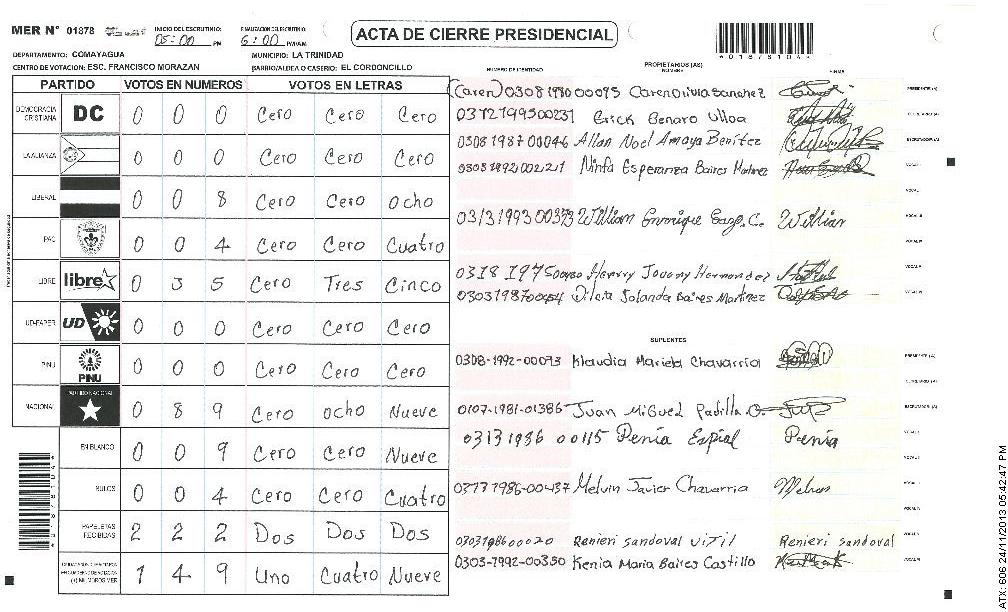 MER N° 01878
INICIO DEL ESCRUTINIO: 05:00 PM
FINALIZACION DEL ESCRUTINIO: 6:00 PM/AM
ACTA DE CIERRE PRESIDENCIAL
DEPARTAMENTO: COMAYAGUA
MUNICIPIO: LA TRINIDAD
CENTRO DE VOTACION: ESC. FRANCISCO MORAZAN
BARRIO/ALDEA O CASERIO: EL CORDONCILLO
PARTIDO VOTOS EN NUMEROS VOTOS EN LETRAS
DEMOCRACIA CRISTIANA DC 0 0 0 Cero Cero Cero
LA ALIANZA 0 0 0 Cero Cero Cero
LIBERAL 0 0 8 Cero Cero Ocho
PAC 0 0 4 Cero Cero Cuatro
LIBRE libre 0 3 5 Cero Tres Cinco
UD-FAPER UD 0 0 0 Cero Cero Cero
PINU PINU 0 0 0 Cero Cero Cero
NACIONAL PARTIDO NACIONAL 0 8 9 Cero ocho Nueve
EN BLANCO 0 0 9 Cero Cero Nueve
NULOS 0 0 4 Cero Cero Cuatro
PAPELETAS RECIBIDAS 2 2 2 Dos Dos Dos
1 4 9 Uno Cuatro Nueve
NUMERO DE IDENTIDAD
PROPIETARIOS (AS)
NOMBRE
FIRMA
(Caren) 0308 1980 00095 Caren olivia Sanchez
PRESIDENTE (A)
0312199500231 Erick Benaro Ulloa
SECRETARIO (A)
0308 1987 00046 Allan Noel Amaya Benítez
ESCRUTADOR (A)
0308 1992 002227 Ninfa Esperanza Baires Martinez
VOCAL I
VOCAL II
0313199300373 William Enmrique C. William
VOCAL III
VOCAL IV
Henrry Jovany Hernandez
VOCAL V
0303198700054 Dilcia Jolanda Baires Martinez
VOCAL VI
SUPLENTES
0308-1992-00073 Klaudia Mariela Chavarria
PRESIDENTE (A)
SECRETARIO (A)
0107-1981-01386 Juan Miguel Padilla O.
ESCRUTADOR (A)
03131986 00115 Penia Espial Penia
VOCAL I
VOCAL II
1986-00437 Melvin Javier Chavarria Melvin
VOCAL III
VOCAL IV
Renieri sandoval Renieri sandoval
VOCAL V
0303-1992-00350 Kenia Maria Baires Castillo
VOCAL VI
ATX: 606 24/11/2013 05:42:47 PM